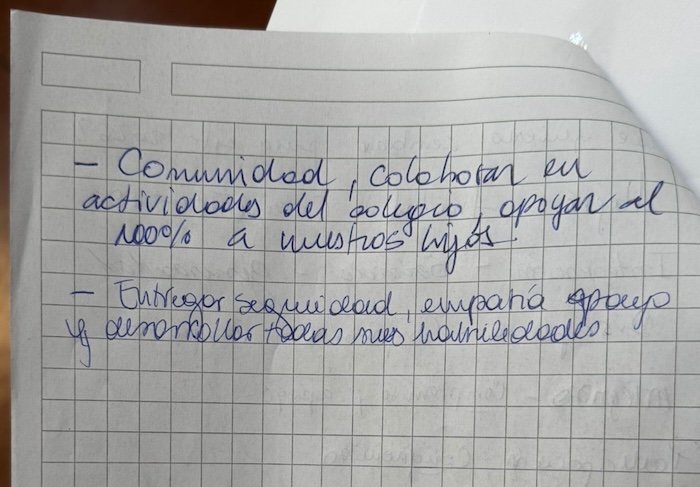 - Comunidad, colaborar en
actividades del colegio, apoyar al
100% a nuestros hijos.
- Entregar seguridad, empatía apoyo
y desarrollar todas sus habilidades.